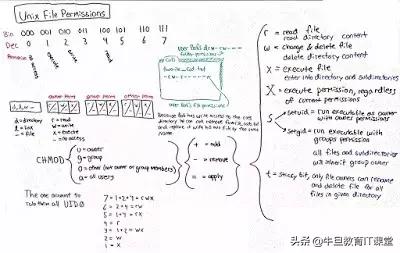 Unix File Permissions
Bin 000 001 010 011 100 101 110 111
Dec 0 1 2 3 4 5 6 7
no access
execute
write
read
owner perm group perm others perm
d, l, -
d = directory
l = link
- = file
r = read
w = write
x = execute
- = no access
CHMOD
u = owner
g = group
o = other (not owner or group members)
a = all users
+ = add
- = remove
= = apply
The one account to
rule them all UID 0
7 = 1+2+4 = rwx
6 = 2+4 = rw
5 = 1+4 = rx
4 = r
3 = 1+2 = wx
2 = w
1 = x
r = read file
read directory content
w = change & delete file
delete directory content
X = execute file
enter into directory and subdirectories
X = execute permission, regardless
of current permissions
S
setuid = run executable as owner
with owners permissions
setgid = run executable with
groups permission
all files and subdirectories
will inherit group owner
t = sticky bit, only file owners can rename
and delete file for all
files in given directory
头条 @牛旦教育IT课堂